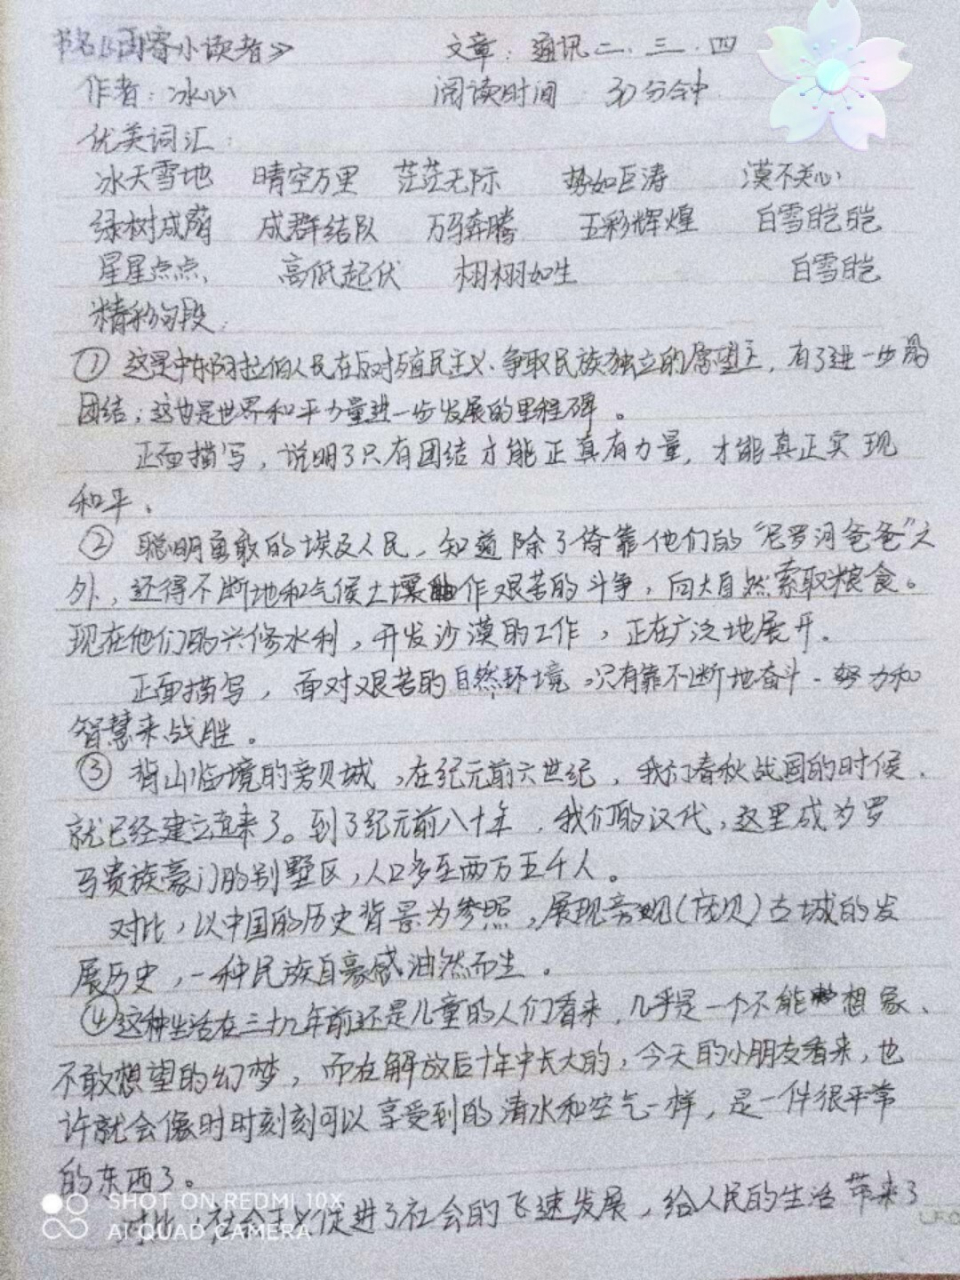 书名《再寄小读者》 文章：通讯二、三、四
作者：冰心 阅读时间 30分钟
优美词汇：
冰天雪地 晴空万里 茫茫无际 势如巨涛 漠不关心
绿树成荫 成群结队 万马奔腾 五彩辉煌 白雪皑皑
星星点点 高低起伏 栩栩如生 白雪皑
精彩句段：
① 这是中东阿拉伯人民在反对殖民主义、争取民族独立的愿望上，有了进一步的
团结；这也是世界和平力量进一步发展的里程碑。
正面描写，说明了只有团结才能正真有力量，才能真正实现
和平。
② 聪明勇敢的埃及人民，知道除了倚靠他们的“尼罗河爸爸”之
外，还得不断地和气候土壤作艰苦的斗争，向大自然索取粮食。
现在他们的兴修水利，开发沙漠的工作，正在广泛地展开。
正面描写，面对艰苦的自然环境，只有靠不断地奋斗、努力和
智慧来战胜。
③ 背山临境的旁贝城，在纪元前六世纪，我们春秋战国的时候，
就已经建立起来了。到了纪元前八十年，我们的汉代，这里成为罗
马贵族豪门的别墅区，人口多至两万五千人。
对比，以中国的历史背景为参照，展现旁贝(庞贝)古城的发
展历史，一种民族自豪感油然而生。
④这种生活在三十九年前还是儿童的人们看来，几乎是一个不能想象、
不敢想望的幻梦，而在解放后十年中长大的，今天的小朋友看来，也
许就会像时时刻刻可以享受到的清水和空气一样，是一件很平常
的东西了。
对比，社会主义促进了社会的飞速发展，给人民的生活带来了
SHOT ON REDMI 10X
AI QUAD CAMERA